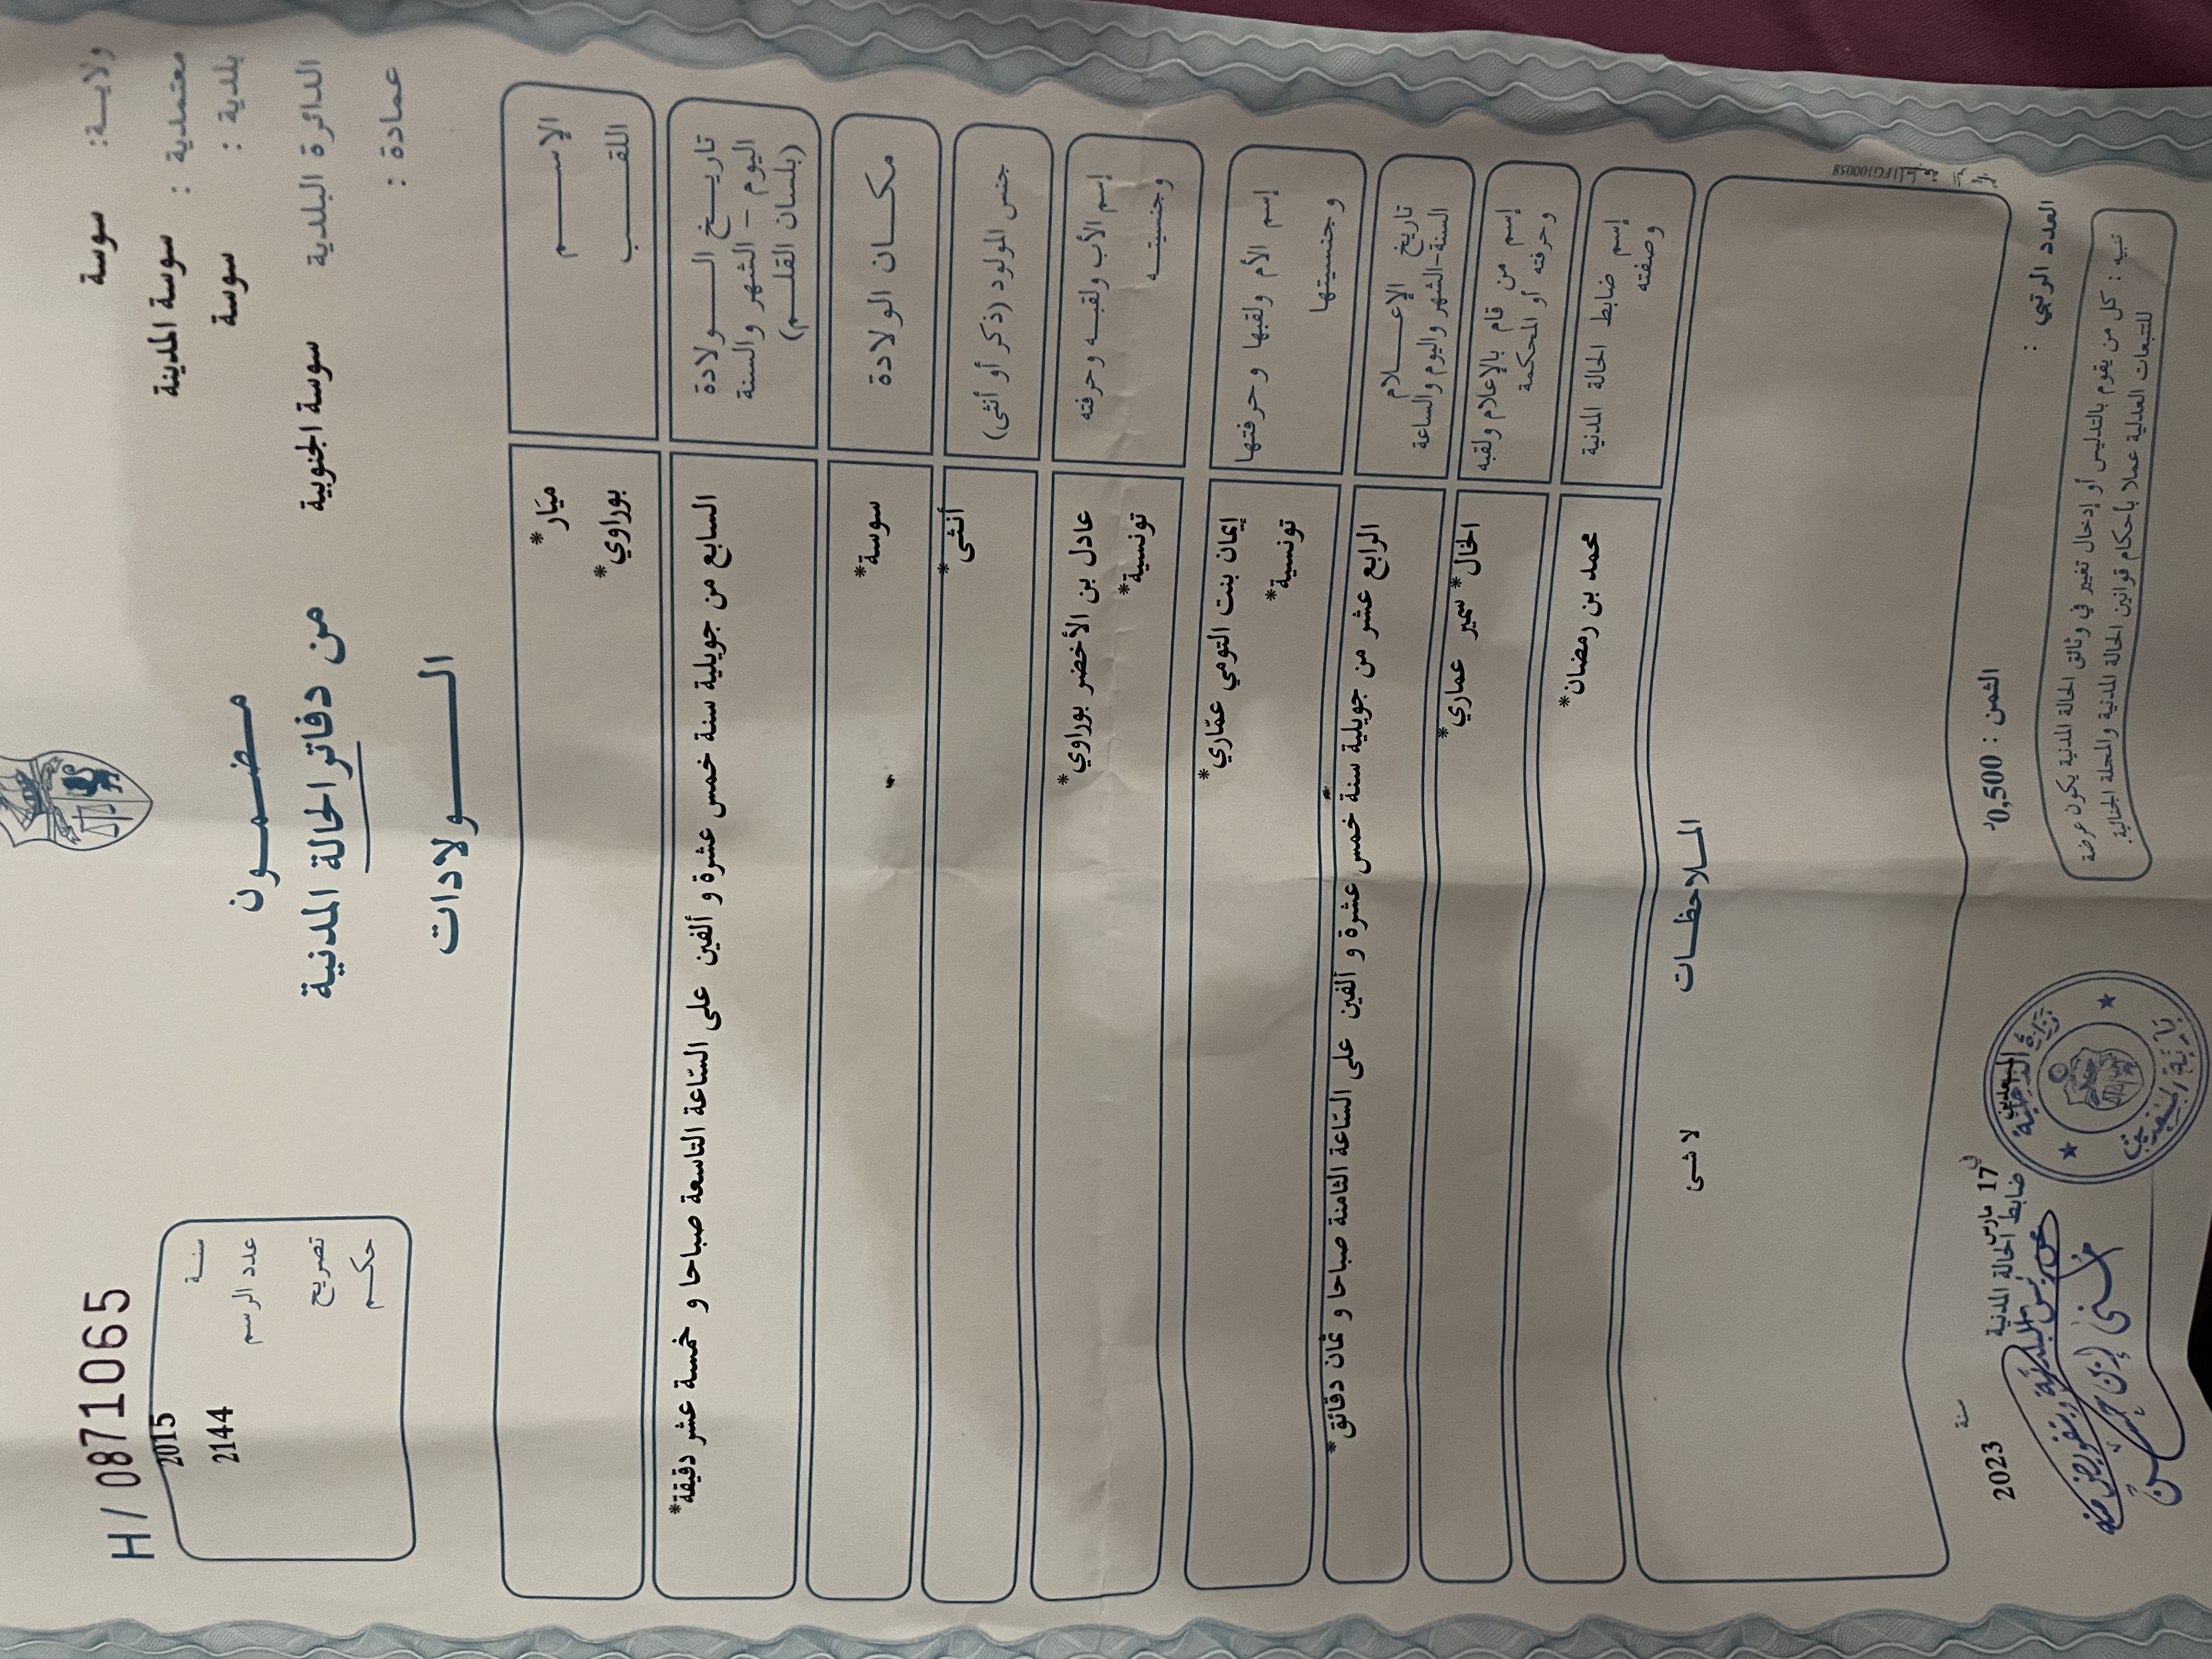 ولايـة: سوسة
معتمدية : سوسة المدينة
بلدية : سوسة
الدائرة البلدية سوسة الجنوبية
عمادة :
H/0871065
سنـة 2015
عدد الرسم 2144
تصريح
حكـم
مضمـون
من دفاتر الحالة المدنية
الـولادات
الإسـم ميَار*
اللقـب بوراوي*
تاريـخ الـولادة
اليوم - الشهر والسنة
(بلسان القلـم)
السابع من جويلية سنة خمس عشرة و ألفين على السّاعة التاسعة صباحا و خمسة عشر دقيقة*
مكـان الولادة سوسة*
جنس المولود (ذكر أو أنثى) أنثى*
إسم الأب ولقبـه وحرفته عادل بن الأخضر بوراوي*
وجنسيتـه تونسية*
إسم الأم ولقبها وحرفتها إيمان بنت التومي عمّاري*
وجنسيتها تونسية*
تاريخ الإعـلام
السنة-الشهر واليوم والساعة
الرابع عشر من جويلية سنة خمس عشرة و ألفين على السّاعة الثامنة صباحا و ثمان دقائق*
إسم من قام بالإعلام ولقبه
وحرفته أو المحكمة
الخال* سمير عماري*
إسم ضابط الحالة المدنية
وصفته
محمد بن رمضان*
الملاحظـات
لا شئ
العدد الرتبي :
الثمن : 0,500د
في 17 مارس سنة 2023
ضابط الحالة المدنية
تنبيه : كل من يقوم بالتدليس أو إدخال تغيير في وثائق الحالة المدنية يكون عرضة
للتتبعات العدلية عملا بأحكام قوانين الحالة المدنية والمجلة الجنائية.
وزارة الداخلية